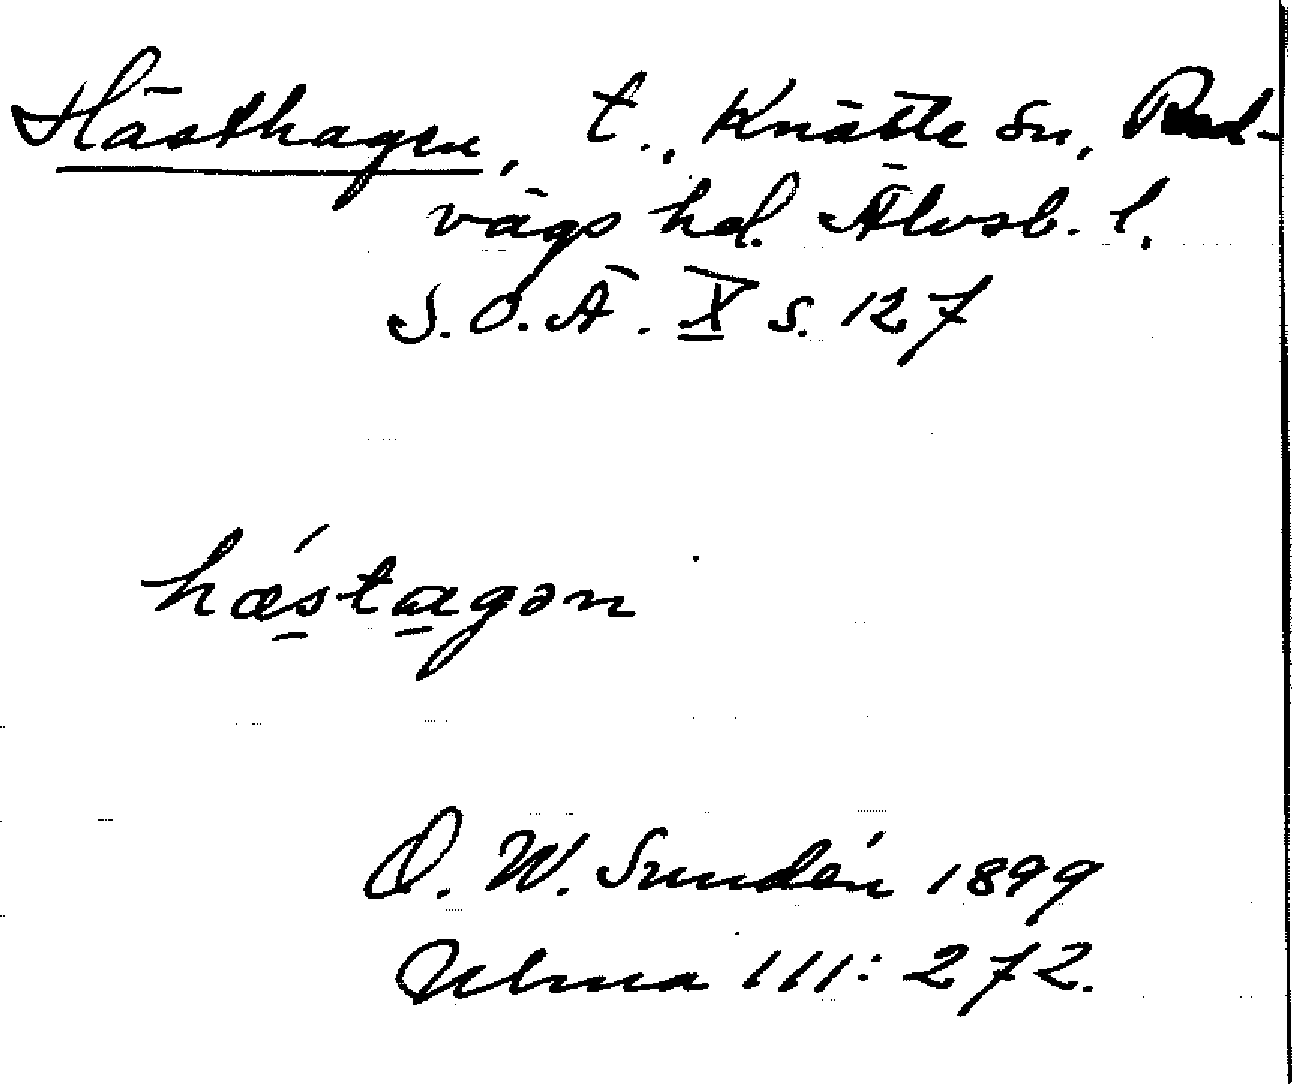 Hästhagen, t., Knätte sn, Red-
vägs hd. Älvsb. l.
S.O.Ä. X s. 127
hæ´stagən
D. W. Sundén 1899
Ulma 111:272.